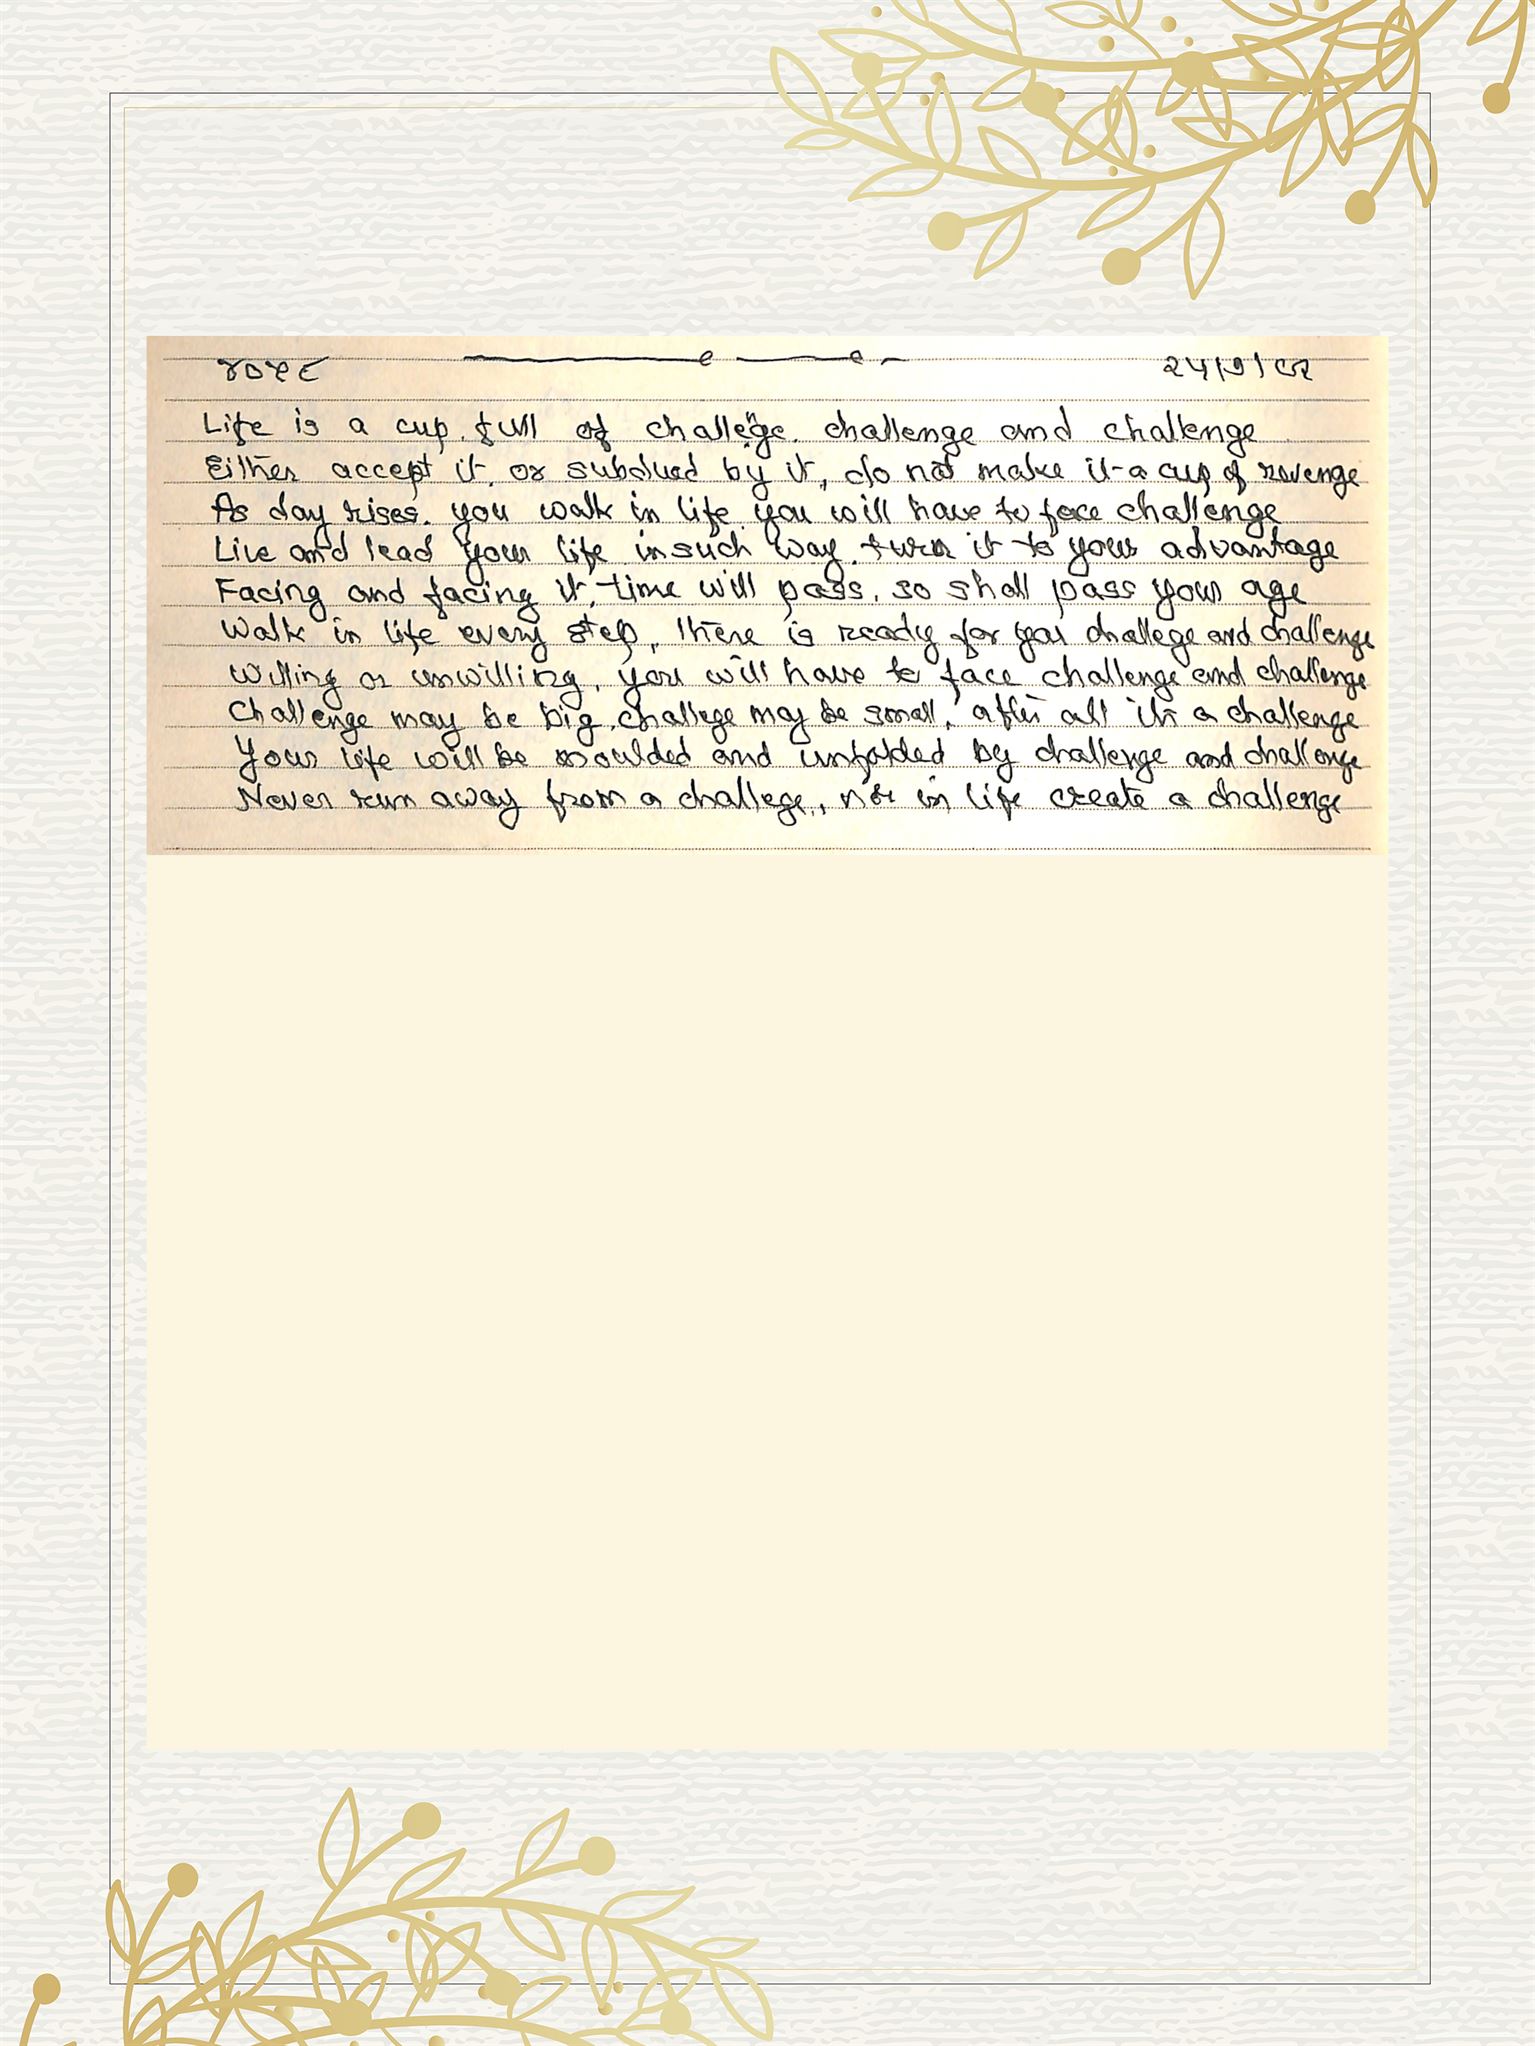 Life is a cup, full of challenge, challenge and challenge
Either accept it, or subdued by it, do not make it a cup of revenge
As day rises, you walk in life you will have to face challenge
Live and lead your life in such way, turn it to your advantage
Facing and facing it, time will pass, so shall pass your age
Walk in life every step, there is ready for you challege and challenge
Willing or unwilling, you will have to face challenge and challenge
Challenge may be big, challege may be small, after all its a challenge
Your life will be moulded and unfolded by challenge and challenge
Never run away from a challege, nor in life create a challenge